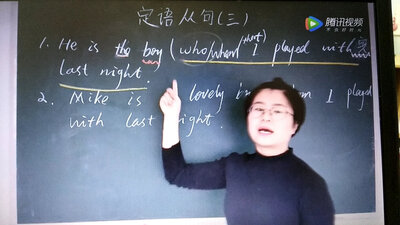 定语从句(三)
腾讯视频
1. He is the boy (who/whom I played with
last night.
2. Mike is lovely I played
with last night.